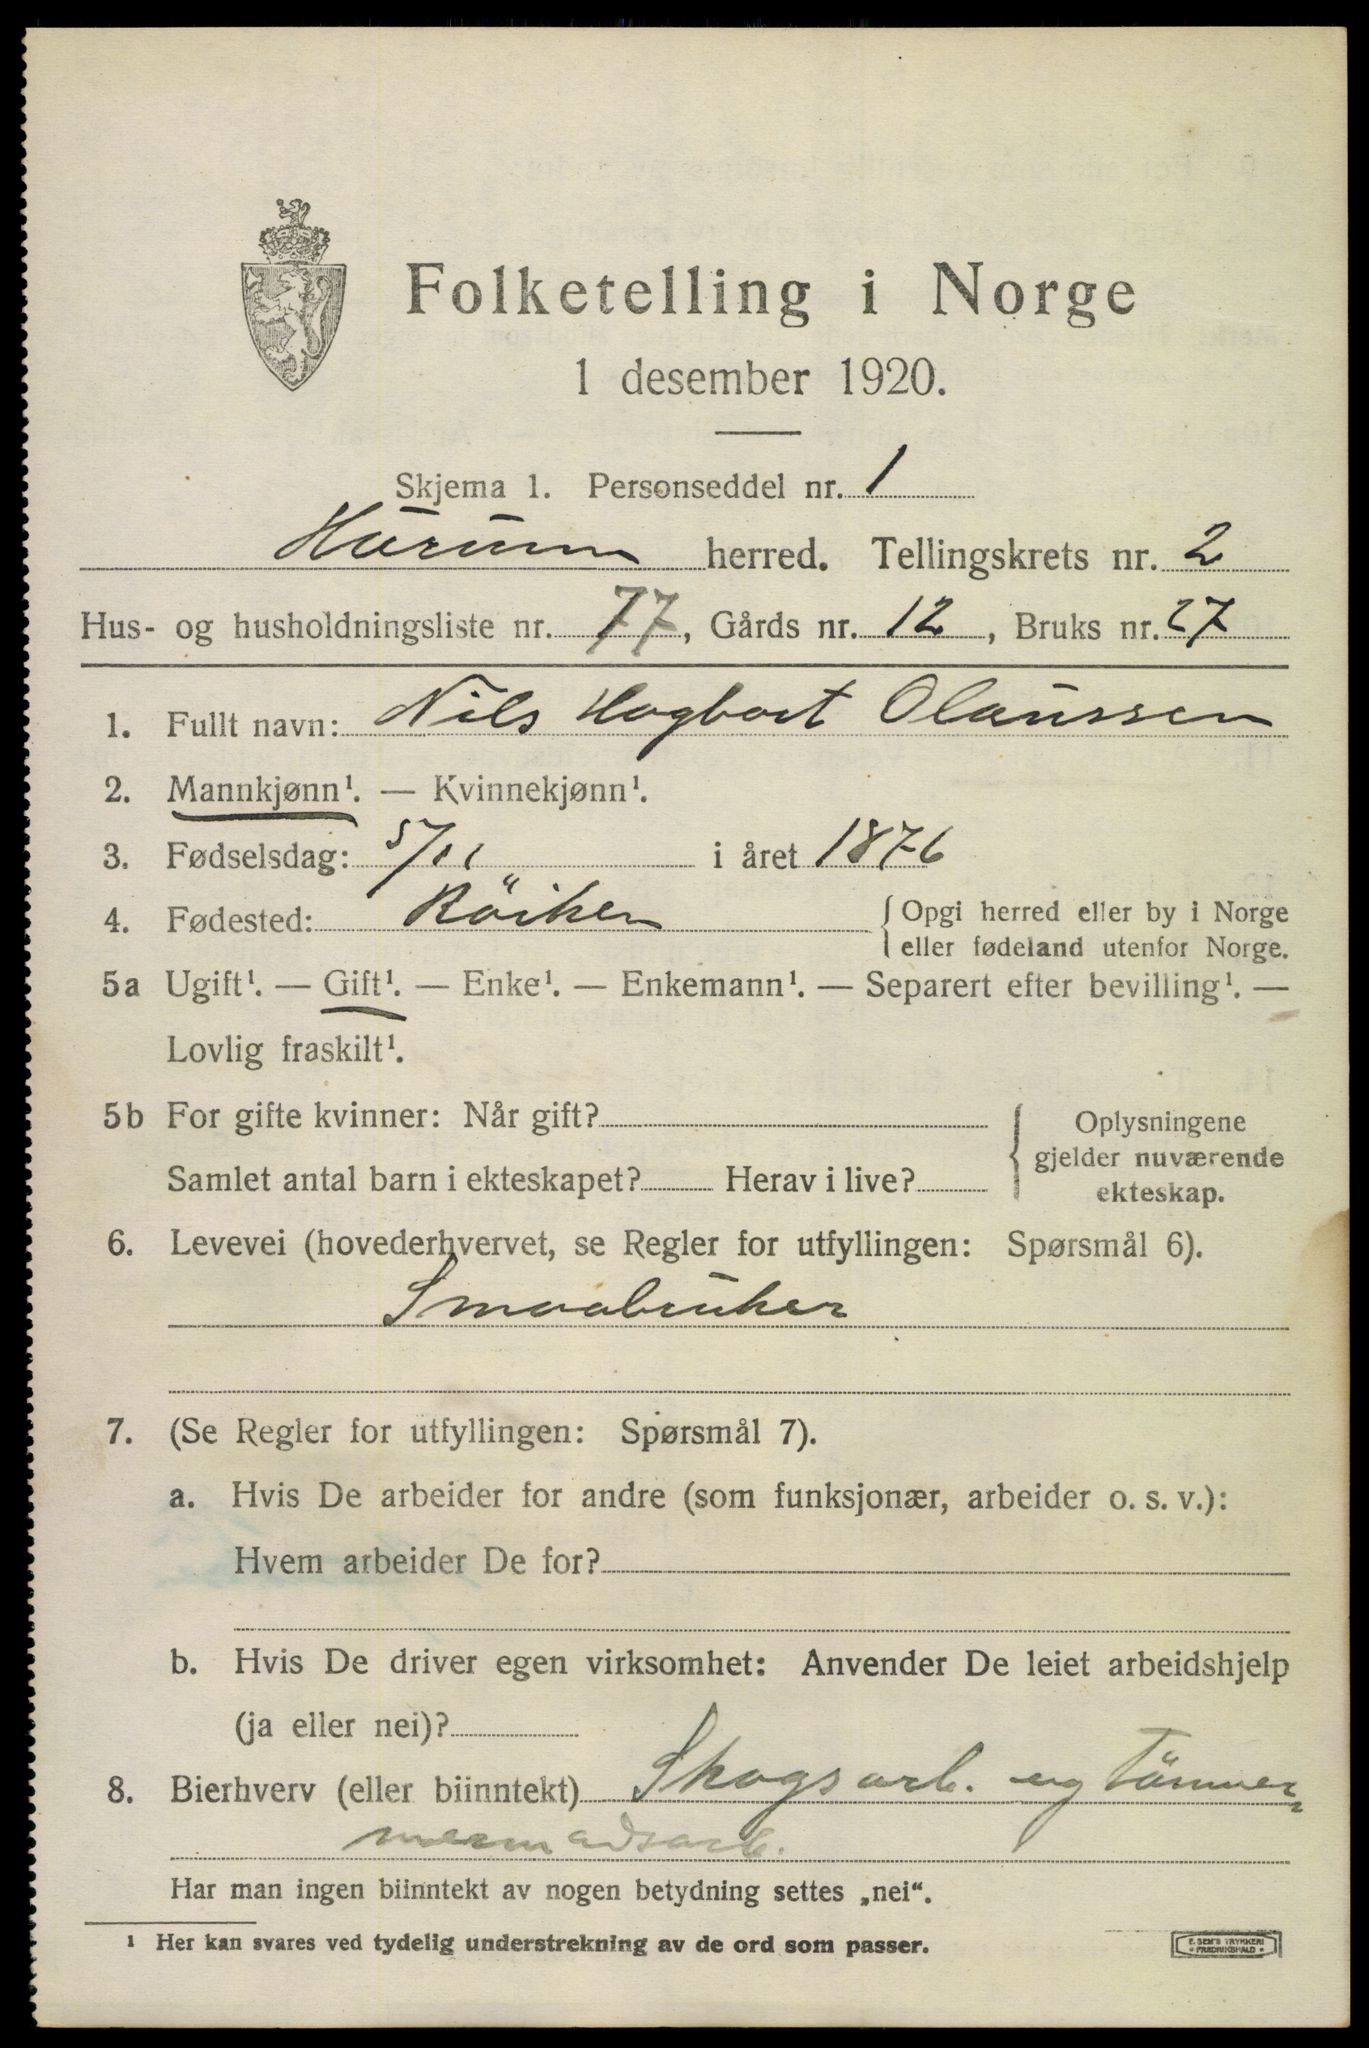 Folketelling i Norge
1 desember 1920.
Skjema 1. Personseddel nr. 1
Hurum herred. Tellingskrets nr. 2
Hus- og husholdningsliste nr. 77, Gårds nr. 12, Bruks nr. 27
1. Fullt navn: Nils Hagbart Olaussen
2. Mannkjønn¹. — Kvinnekjønn¹.
3. Fødselsdag: 5/11 i året 1876
4. Fødested: Röiken { Opgi herred eller by i Norge
eller fødeland utenfor Norge.
5a Ugift¹. — Gift¹. — Enke¹. — Enkemann¹. — Separert efter bevilling¹. —
Lovlig fraskilt¹.
5b For gifte kvinner: Når gift? { Oplysningene
gjelder nuværende
Samlet antal barn i ekteskapet? Herav i live?
ekteskap.
6. Levevei (hovederhvervet, se Regler for utfyllingen: Spørsmål 6).
Smaabruker
7. (Se Regler for utfyllingen: Spørsmål 7).
a. Hvis De arbeider for andre (som funksjonær, arbeider o. s. v.):
Hvem arbeider De for?
b. Hvis De driver egen virksomhet: Anvender De leiet arbeidshjelp
(ja eller nei)?
8. Bierhverv (eller biinntekt) Skogsarb. og Tömmer-
Har man ingen biinntekt av nogen betydning settes „nei“.
¹ Her kan svares ved tydelig understrekning av de ord som passer.
E. SEM'S TRYKKERI
FREDRIKSHALD